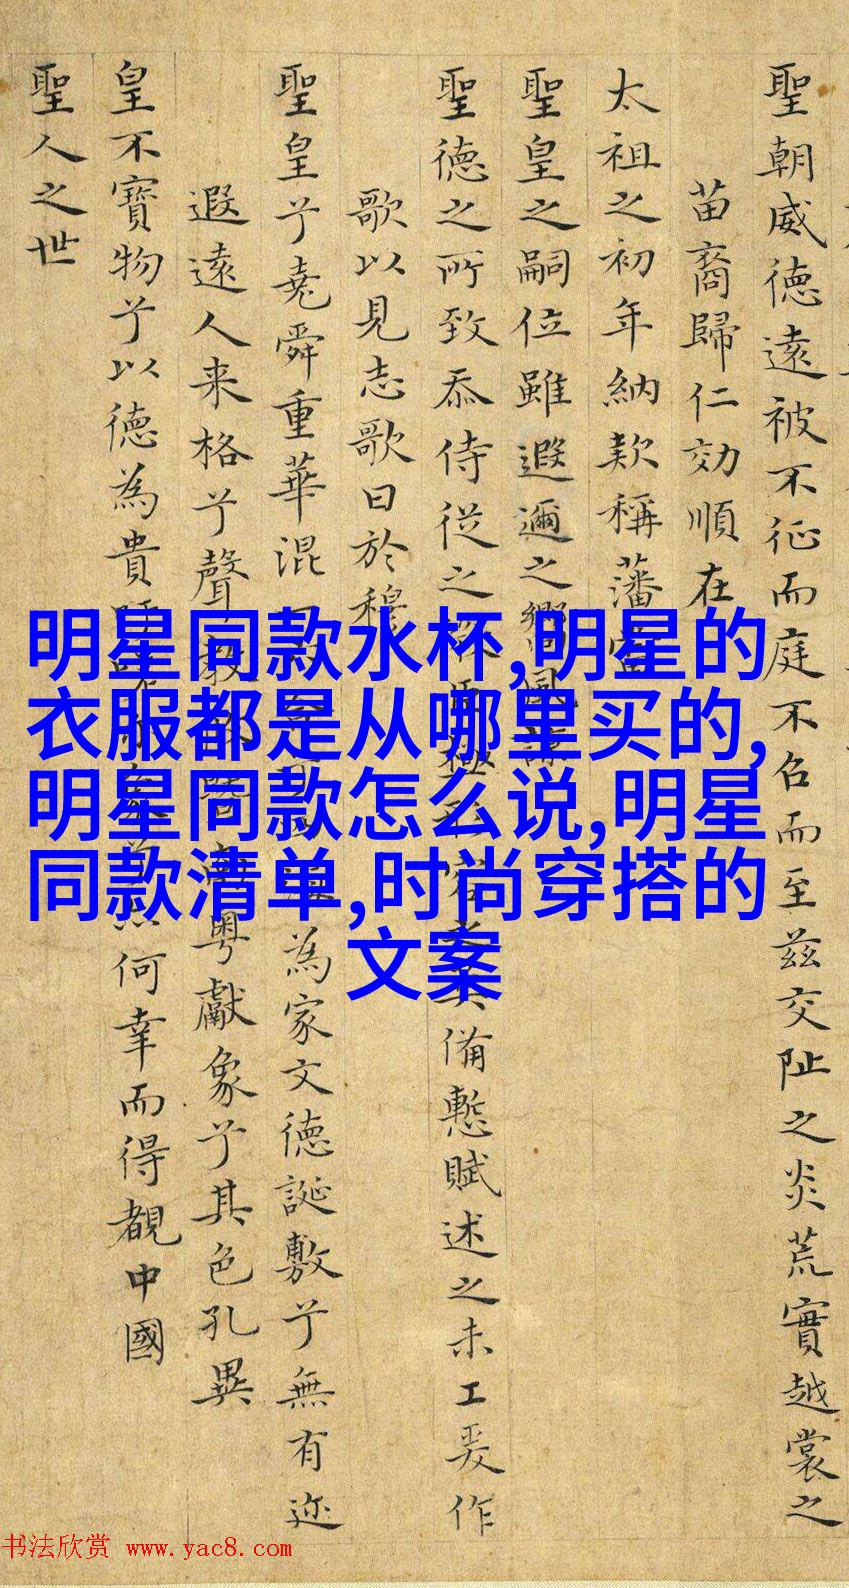 聖朝威德遠被不征而庭不召而至茲交阯之炎荒實越裳之
苗裔歸仁効順在
太祖之初年納款稱藩
聖皇之嗣位雖遐邇之嚮風諒
聖德之所致忝侍從之備慙賦述之未工爰作
歌以見志歌曰於穆
聖皇兮堯舜重華混為家文德誕敷兮無有迩
遐遠人来格兮聲教粤獻象兮其色孔異
皇不寶物兮以德為貴何幸而得覩中國
聖人之世
明星同款水杯,明星的
衣服都是从哪里买的,
明星同款怎么说,明星
同款清单,时尚穿搭的
文案
书法欣赏 www.yac8.com